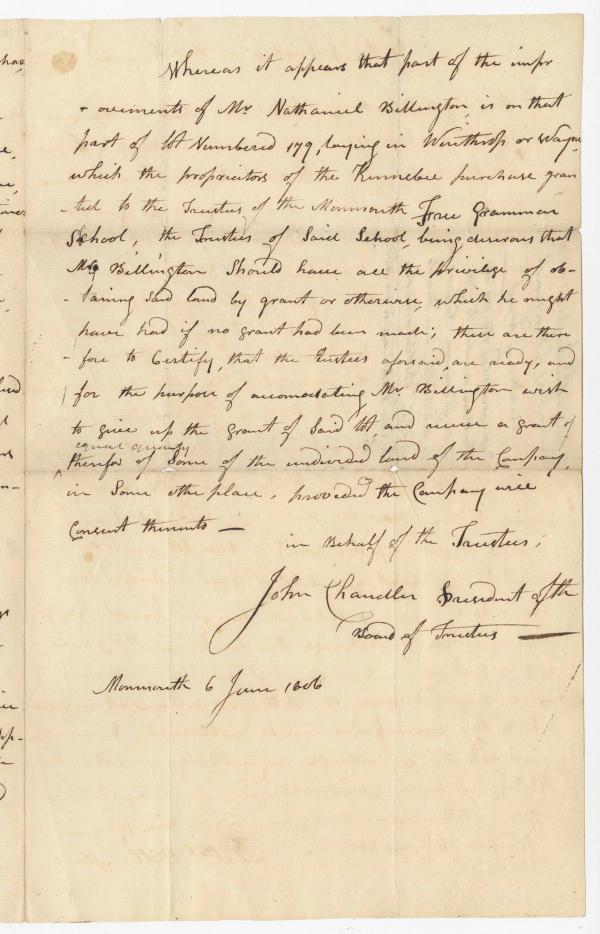 Whereas it appears that part of the impr
- ovements of Mr Nathaniel Billington, is on that
part of lot Numbered 179, laying in Winthrop or Wayne
which the proprietors of the Kennebec purchase gran
- ted to the Trustees of the Monmouth Free Grammar
School, the Trustees of Said School, being desirous that
Mr Billington Should have all the privilege of ob-
- taining said land by grant or otherwise, which he might
have had if no grant had been made; these are there
- fore to Certify, that the Trustees aforsaid, are ready, and
for the purpose of accomodating Mr. Billington wish
to give up the grant of Said lot, and receive a grant of
equal quantity
therefor of Some of the undivided land of the Company,
in Some other place, provided the Company will
Consent thereunto —
in Behalf of the Trustees,
John Chandler President of the
Board of Trustees —
Monmouth 6 June 1806